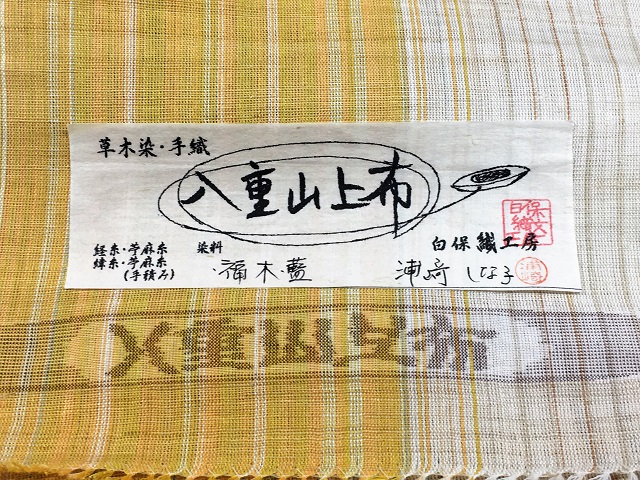 草木染・手織
八重山上布
経糸・苧麻糸
緯糸・苧麻糸
(手積み)
染料
福木・藍
白保織工房
浦崎 しな子
八重山上布